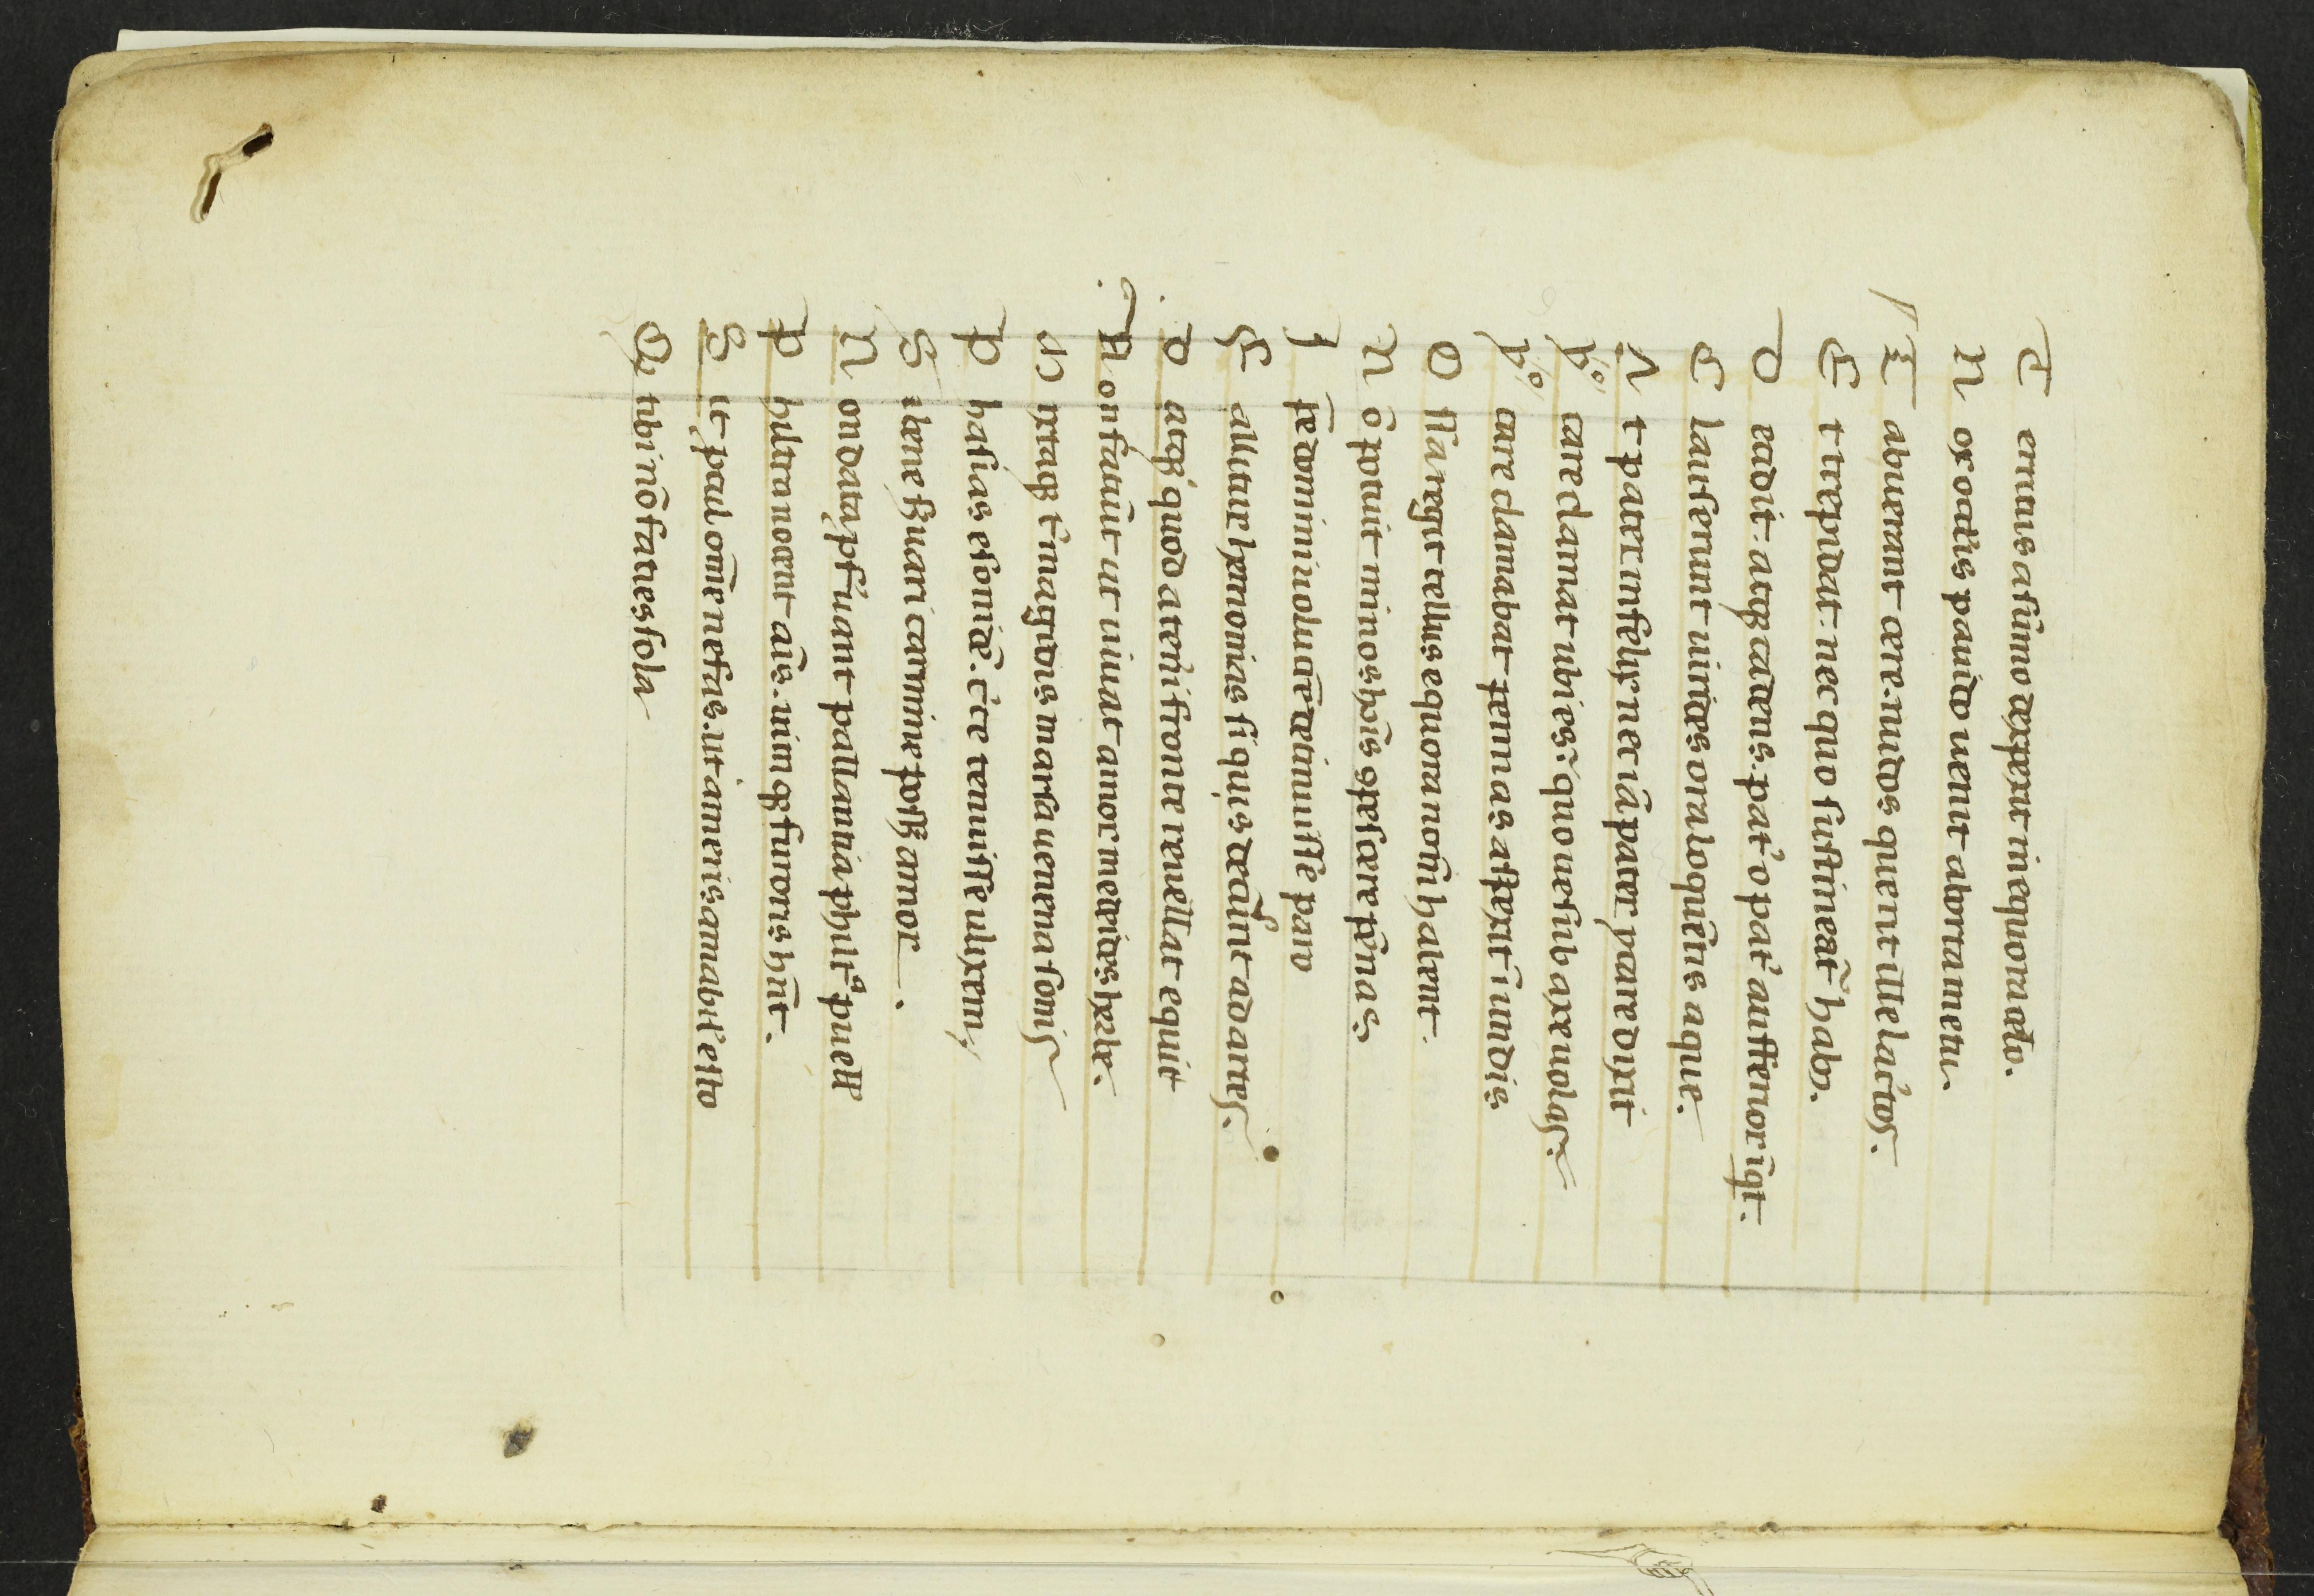 T erritus a sũmo despexit inequora celo.
N ox oc̃lis pauido uenit aborta metu.
T abuerant cere. nudos querit ille lac̃tos.
E t trepidat nec quo sustineat̃ habz.
D ecidit. atqz cadens. pat̾ o pat̾ auferior iqt.
C lauserunt uirides ora loquẽtis aque.
A t pater infelix nec iã pater ycare dixit
yº care clamat ubi es? quoue sub axe uolas?
yº care clamabat pennas aspexit ĩ undis.
O ssa tegit tellus equora nom̃ habent.
N õ potuit minos hoĩs 9pescere pẽnas
I pse deum uolucrẽ detinuisse paro
F allitur hemonias si quis decũrit ad artes.
D atqz quod a teneri fronte reuellat equi
N on faciũt ut uiuat amor medeides herbe.
M ixtaqz cũ magicis marsa uenena sonis
P hasias esonidẽ. circe tenuisset ulixem
S i modo seruari carmine posset amor.
N on data profuerant pallantia philtra puell̾
P hiltra nocent aĩs. uimqz furoris hñt.
S it pcul oẽ nefas. ut ameris amabil̾ esto
Q tibi nõ facies sola